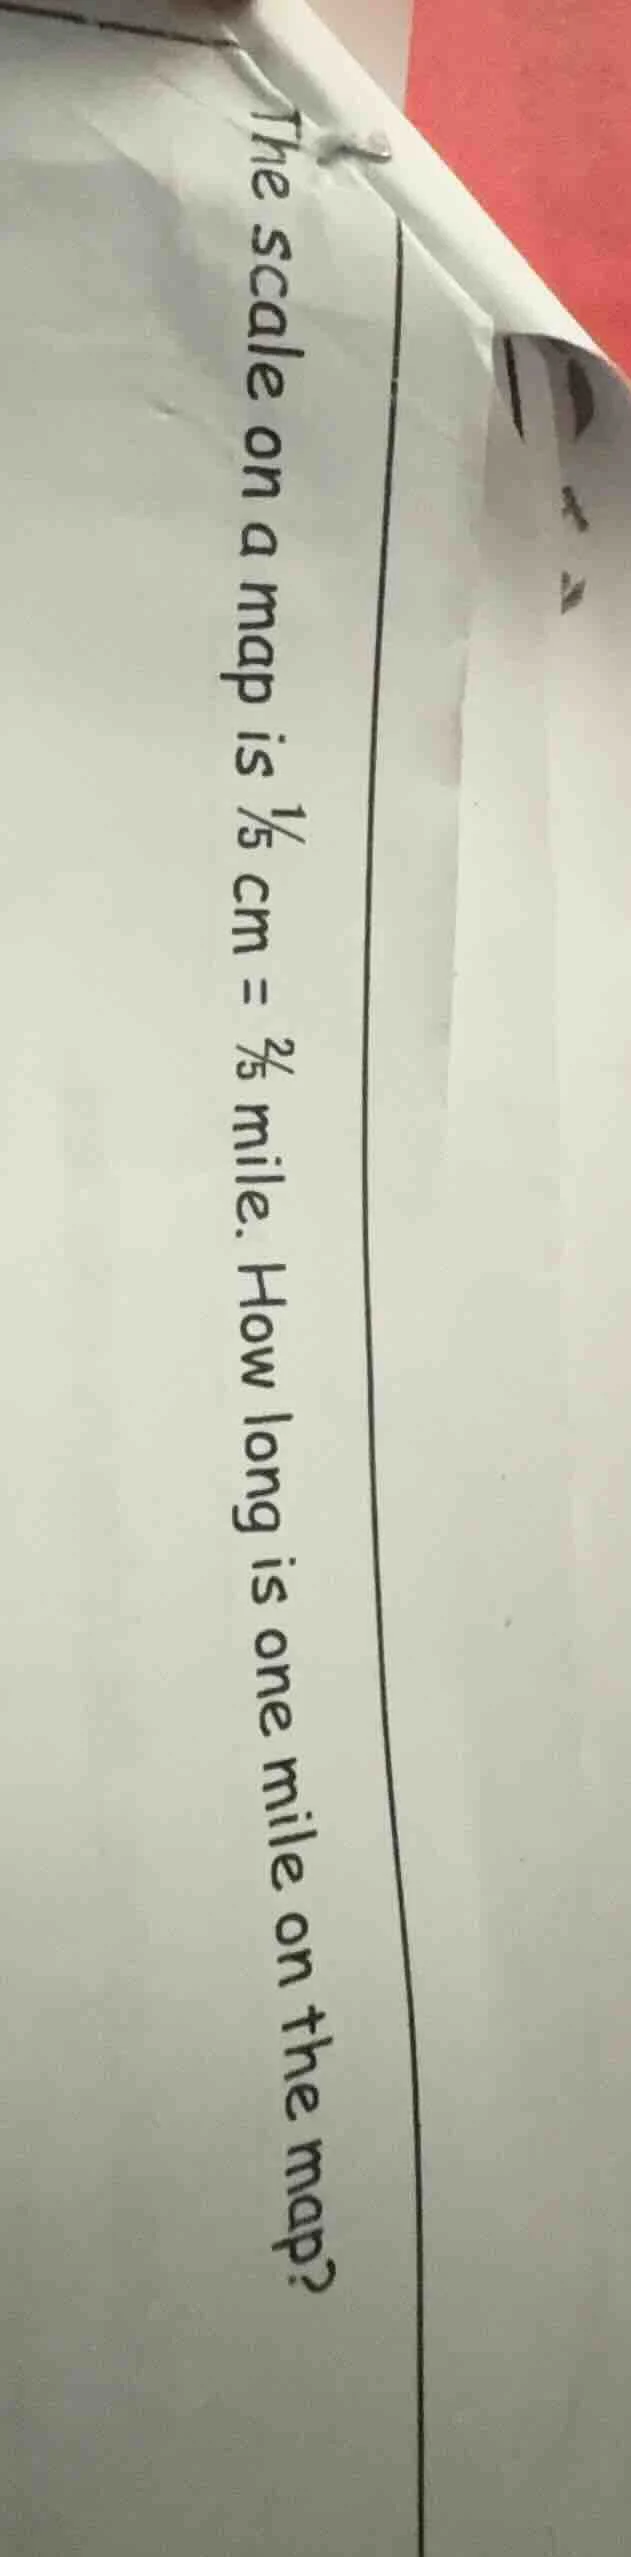 The scale on a map is ⅕ cm = ⅖ mile. How long is one mile on the map?